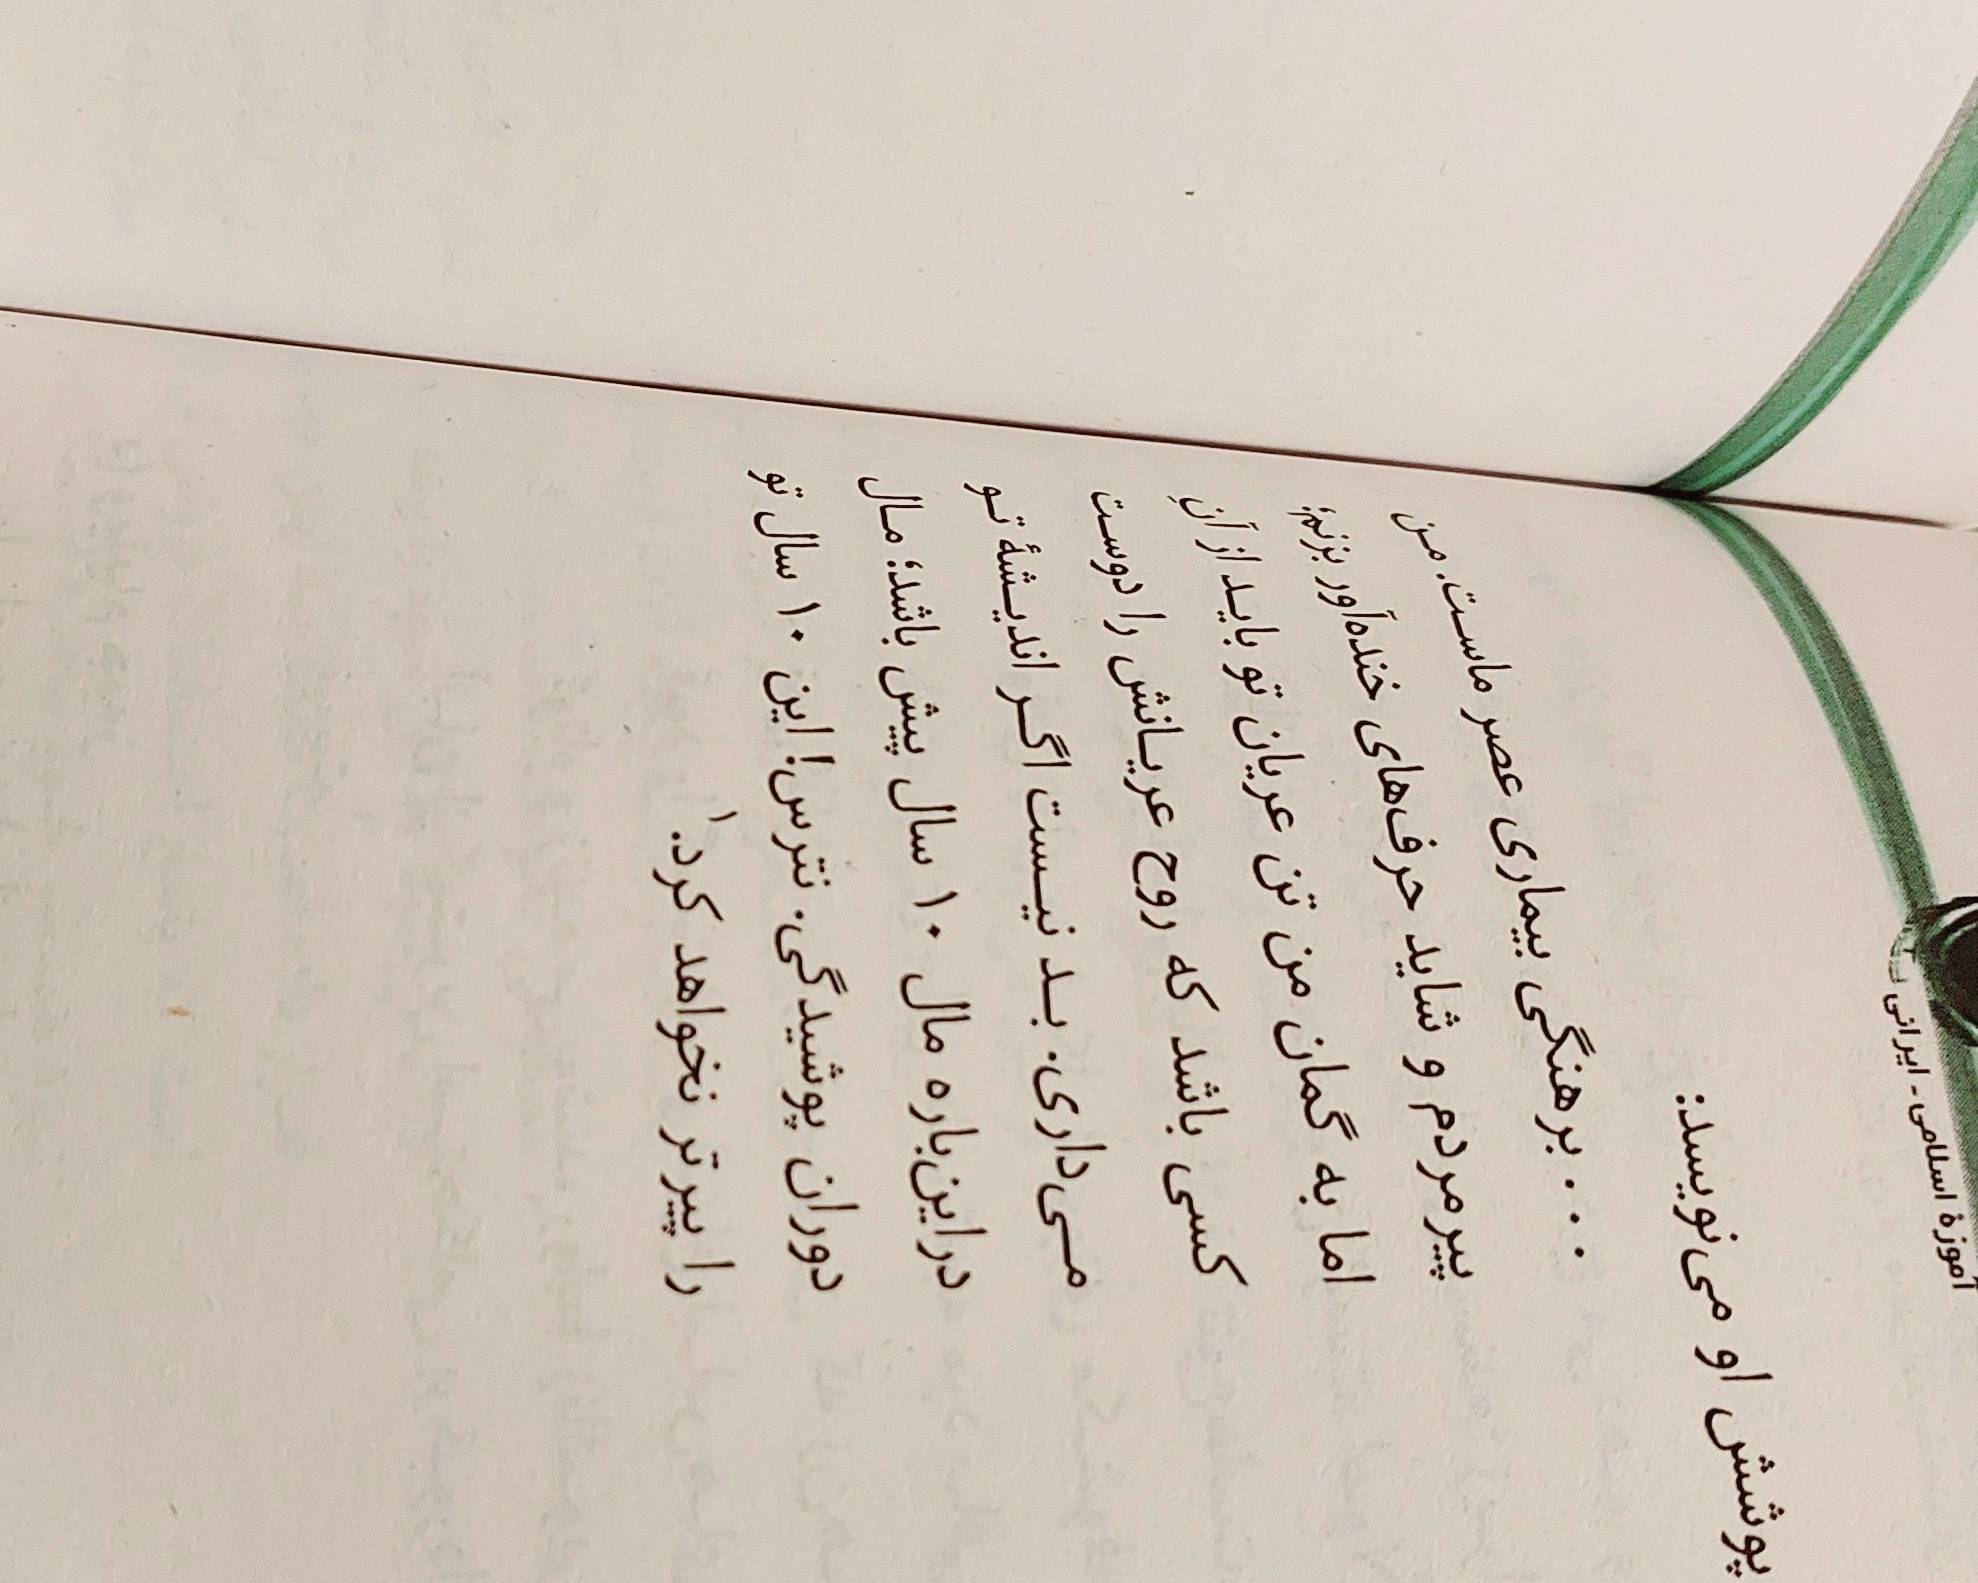 آموزهٔ اسلامی - ایرانی
پوشش او می‌نویسد:
... برهنگی بیماری عصر ماست. من
پیرمردم و شاید حرف‌های خنده‌آور بزنم؛
اما به گمان من تن عریان تو باید از آنِ
کسی باشد که روح عریانش را دوست
می‌داری. بد نیست اگر اندیشهٔ تو
دراین‌باره مال ۱۰ سال پیش باشد؛ مال
دوران پوشیدگی. نترس! این ۱۰ سال تو
را پیرتر نخواهد کرد.۱